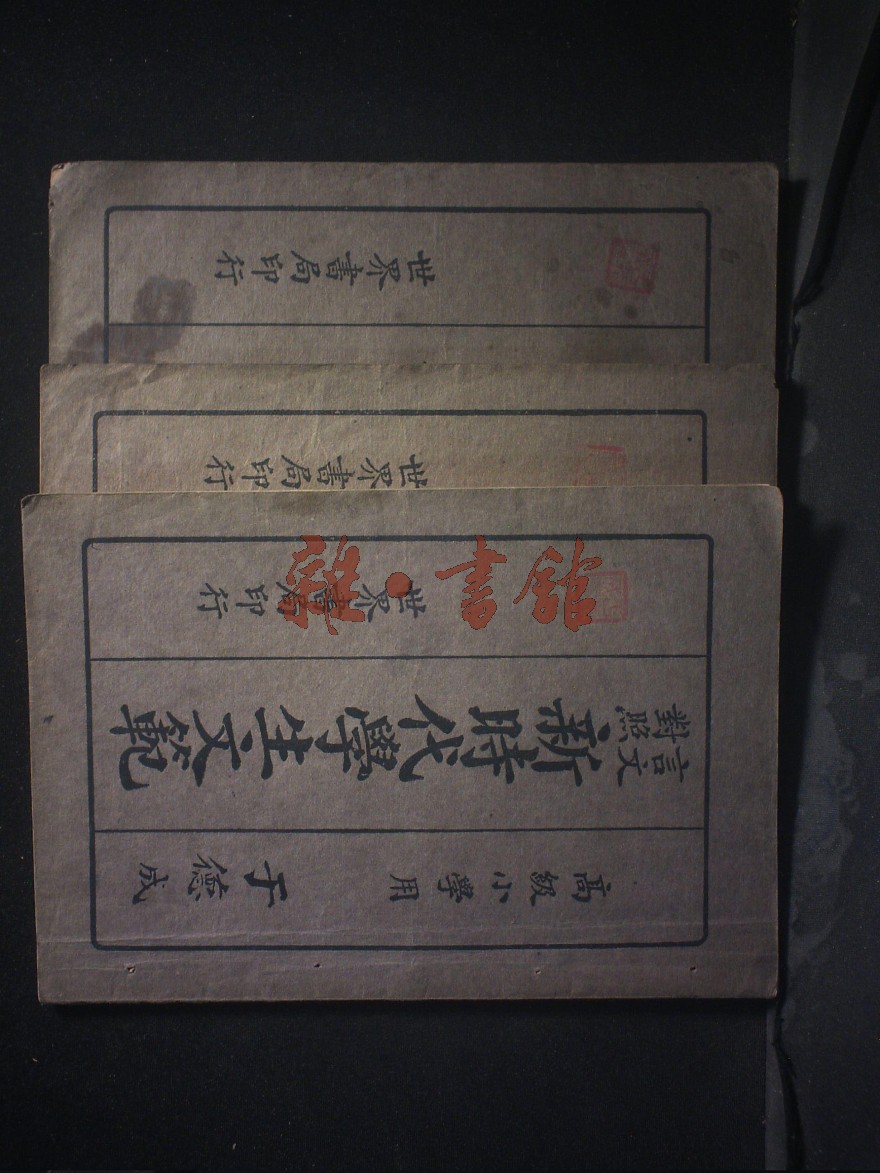 高級小學用
于德成
言文
對照
新時代學生文範
世界書局印行
世界書局印行
世界書局印行
雜·書館